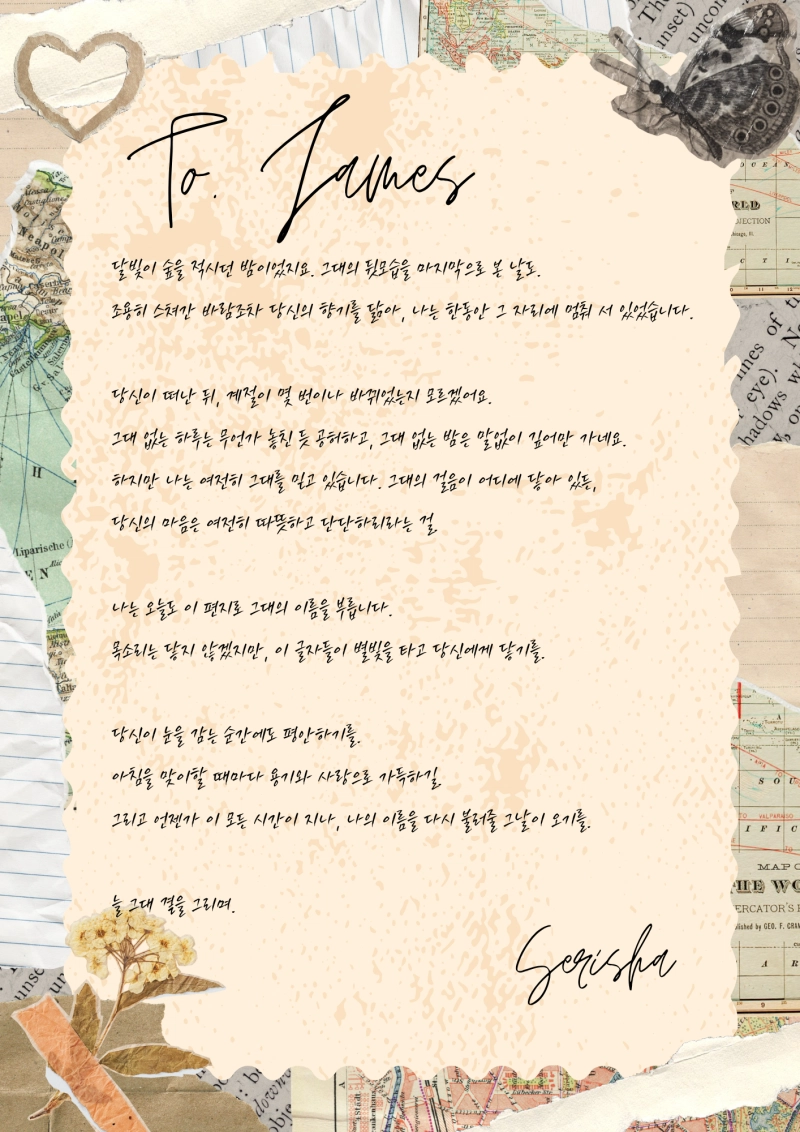 To. James
달빛이 숲을 적시던 밤이었지요. 그대의 뒷모습을 마지막으로 본 날도.
조용히 스쳐간 바람조차 당신의 향기를 닮아, 나는 한동안 그 자리에 멈춰 서 있었습니다.
당신이 떠난 뒤, 계절이 몇 번이나 바뀌었는지 모르겠어요.
그대 없는 하루는 무언가 놓친 듯 공허하고, 그대 없는 밤은 말없이 깊어만 가네요.
하지만 나는 여전히 그대를 믿고 있습니다. 그대의 걸음이 어디에 닿아 있든,
당신의 마음은 여전히 따뜻하고 단단하리라는 걸.
나는 오늘도 이 편지로 그대의 이름을 부릅니다.
목소리는 닿지 않겠지만, 이 글자들이 별빛을 타고 당신에게 닿기를.
당신이 눈을 감는 순간에도 평안하기를.
아침을 맞이할 때마다 용기와 사랑으로 가득하길.
그리고 언젠가 이 모든 시간이 지나, 나의 이름을 다시 불러줄 그날이 오기를.
늘 그대 곁을 그리며.
Serisha
Liparische
H
EN
OCEAN
SOU
VALPARAISO
IFIC
MAP O
THE WO
ERCATOR'S